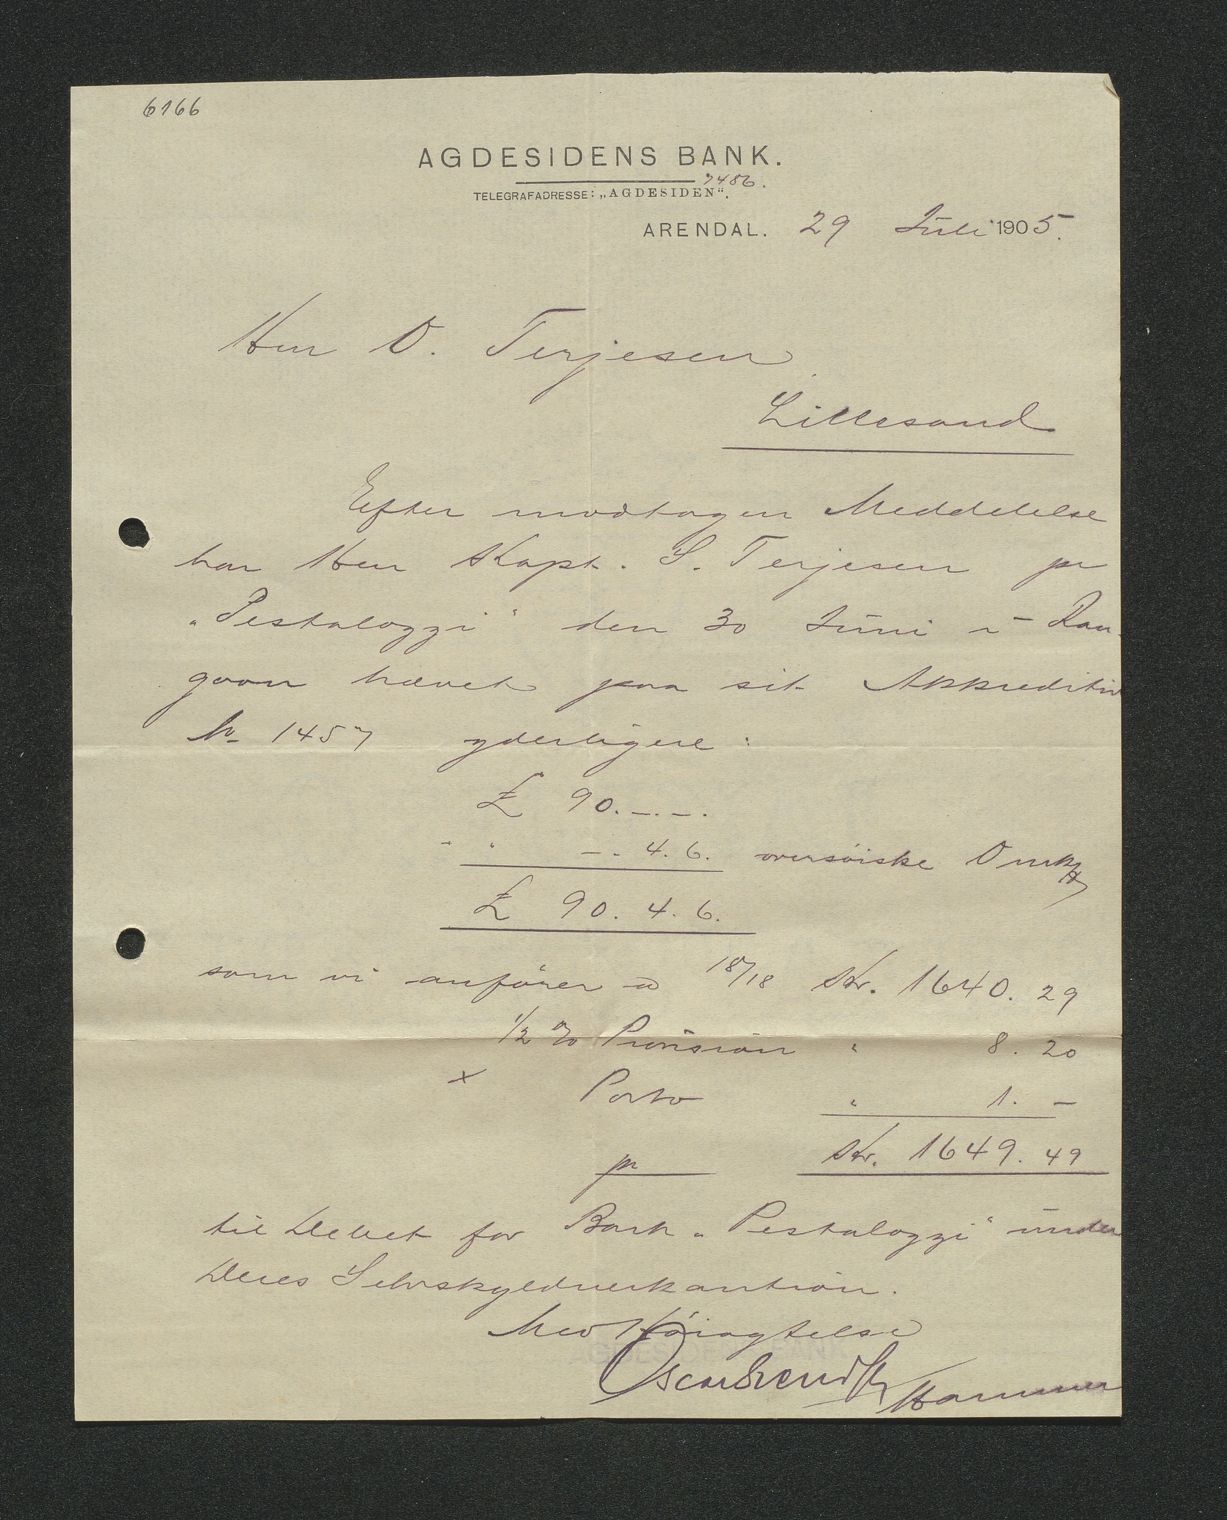 6166
AGDESIDENS BANK.
7486.
TELEGRAFADRESSE: „AGDESIDEN“.
ARENDAL. 29 Juli 1905.
Herr O. Terjesen
Lillesand
Efter modtagen Meddelelse
har Herr Kapt. S. Terjesen pr
„Pestalozzi“ den 30 Juni i Ran-
goon hævet paa sit Akkreditiv
No 1457 yderligere:
£ 90.–.–.
" " –. 4. 6. oversöiske Omk
£ 90. 4. 6.
som vi anförer a 18/18 Kr. 1640. 29
1/2 % Provision " 8. 20
x Porto " 1. –
pr Kr. 1649. 49
til Debet for Bark „Pestalozzi“ under
Deres Selvskyldnerkaution.
Med Höiagtelse
AGDESIDENS BANK
Hammer